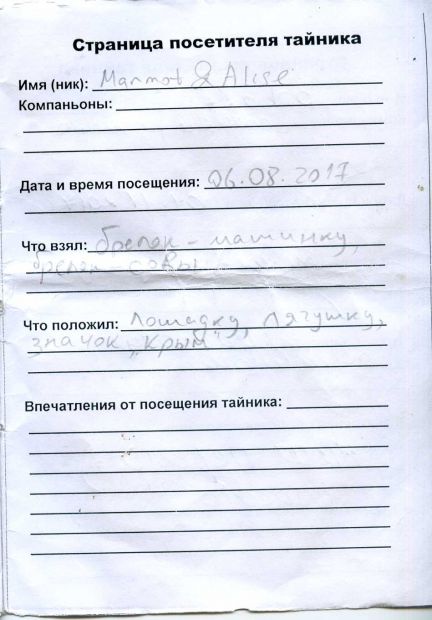 Страница посетителя тайника
Имя (ник): Marmot & Alise
Компаньоны:
Дата и время посещения: 06.08.2017
Что взял: брелок - машинку,
брелок совы
Что положил: Лошадку, лягушку,
значок „Крым"
Впечатления от посещения тайника: